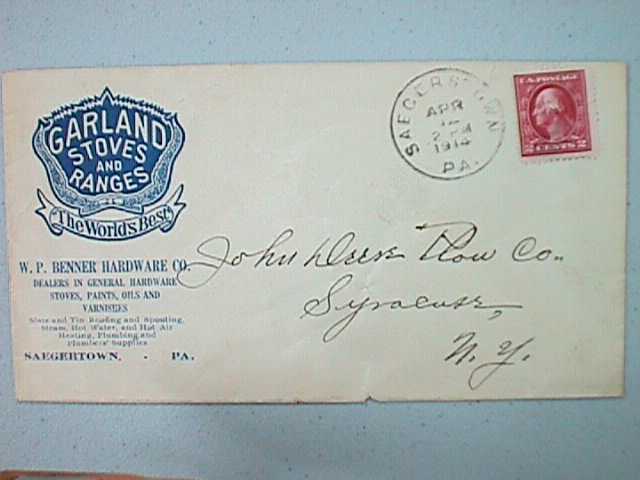 GARLAND
STOVES
AND
RANGES
The World's Best
W. P. BENNER HARDWARE CO.
DEALERS IN GENERAL HARDWARE
STOVES, PAINTS, OILS AND
VARNISHES
Slate and Tin Roofing and Spouting,
Steam, Hot Water, and Hot Air
Heating, Plumbing and
Plumbers' Supplies
SAEGERTOWN, - PA.
SAEGERSTOWN
APR
12
2 PM
1914
PA.
U.S. POSTAGE
2 CENTS 2
John Deere Plow Co.
Syracuse,
N. Y.